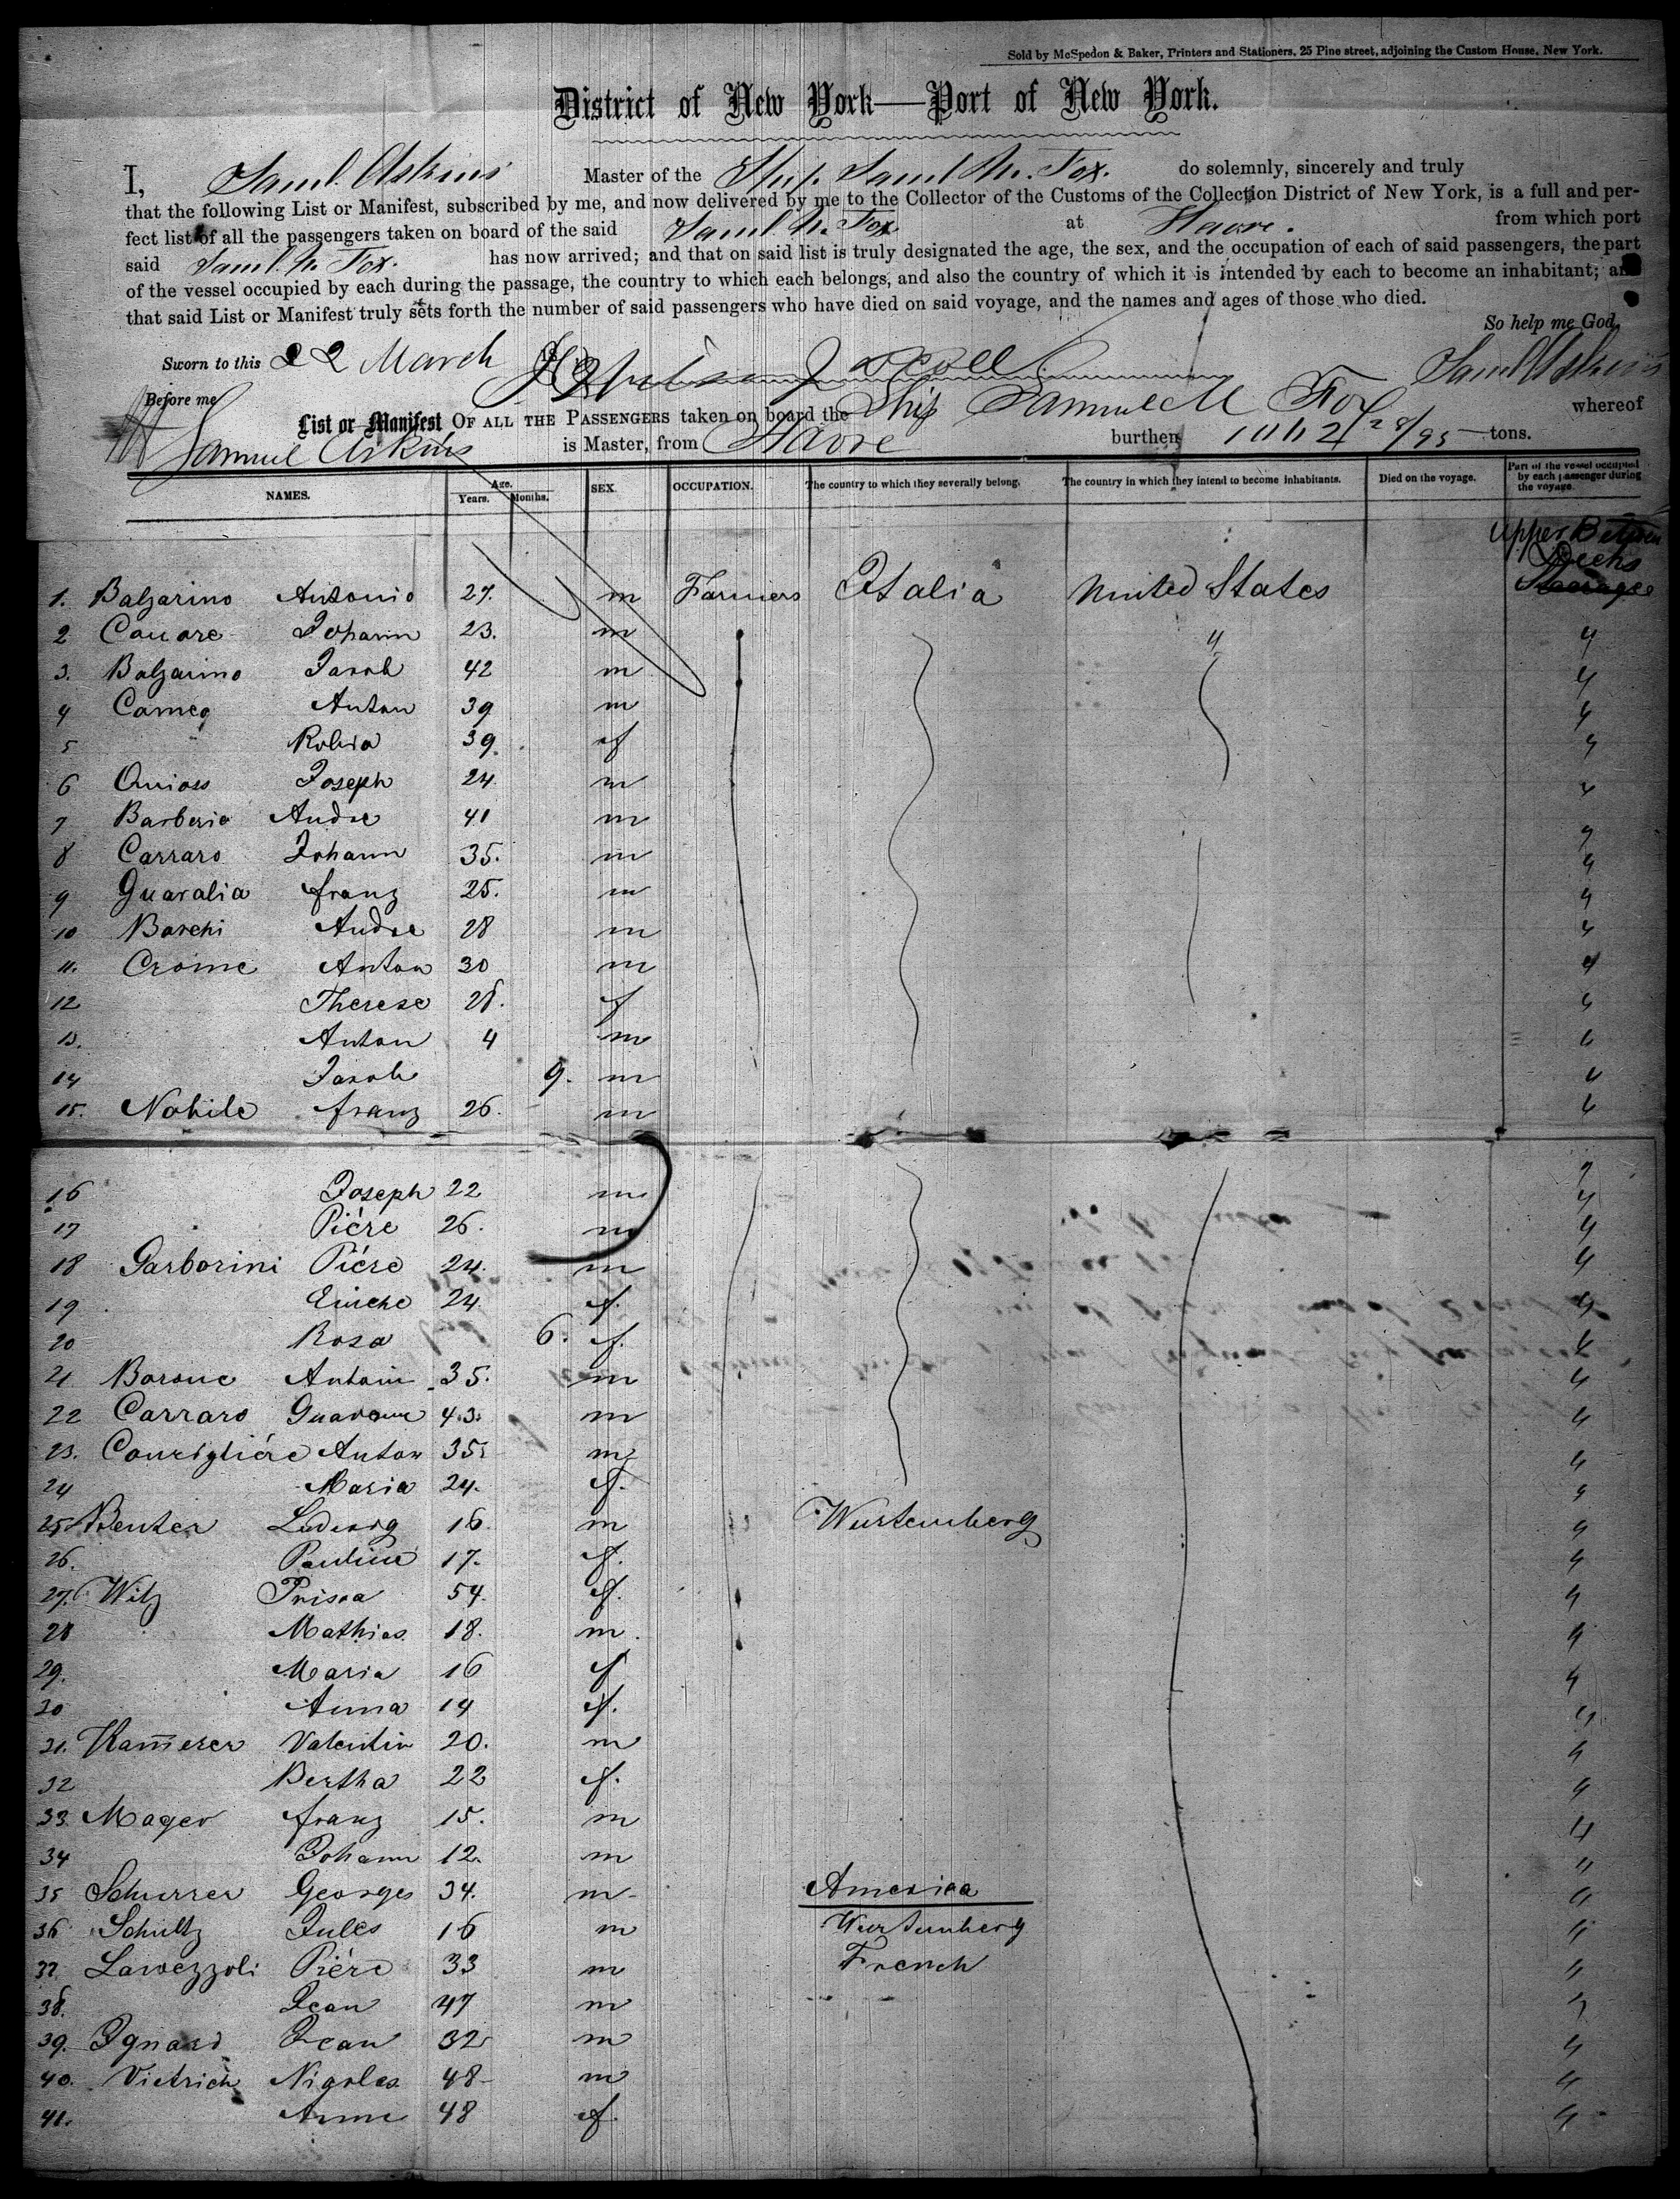 Sold by McSpedon & Baker, Printers and Stationers, 25 Pine street, adjoining the Custom House, New York.
District of New York—Port of New York.
I, Saml. Askins Master of the Ship Saml M. Fox. do solemnly, sincerely and truly
that the following List or Manifest, subscribed by me, and now delivered by me to the Collector of the Customs of the Collection District of New York, is a full and per-
fect list of all the passengers taken on board of the said Saml M. Fox at Havre. from which port
said Saml. M. Fox. has now arrived; and that on said list is truly designated the age, the sex, and the occupation of each of said passengers, the part
of the vessel occupied by each during the passage, the country to which each belongs, and also the country of which it is intended by each to become an inhabitant; and
that said List or Manifest truly sets forth the number of said passengers who have died on said voyage, and the names and ages of those who died.
So help me God,
Sworn to this 22 March 18 Saml Askins
Before me
List or Manifest OF ALL THE PASSENGERS taken on board the Ship Samuel M Fox whereof
Samuel Askins is Master, from Havre burthen 1062 28/95 tons.
NAMES. Age. Years. Months. SEX. OCCUPATION. The country to which they severally belong. The country in which they intend to become inhabitants. Died on the voyage. Part of the vessel occupied by each passenger during the voyage.
Upper Between
Decks
1. Balzarino Antonio 27. m Farmers Italia United States Steerage
2 Canare Johann 23. m " "
3. Balzarino Jacob 42 m "
4 Cameo Anton 39 m "
5 39. f "
6 Joseph 24 m "
7 Barberio Andre 41 m "
8 Carraro Johann 35. m "
9 Guaralia franz 25. m "
10 Boschi Andre 28 m "
11. Crome Anton 30 m "
12 Therese 28. f "
13. Anton 4 m "
14 Jacob 9. m "
15. Nobile franz 26. m "
16 Joseph 22 m "
17 Piére 26. m "
18 Garbarini Piére 24. m "
19 24. f. "
20 Rosa 6. f. "
21 Barone Antoin 35. m "
22 Carraro 43. m "
23. Consigliére Anton 35 m "
24 Maria 24. f. "
25 Ludwig 16. m Wurtemberg "
26. Pauline 17. f. "
27. Witz Prisca 54. f. "
28 Mathias 18. m. "
29. Maria 16 f "
30 Anna 14 f. "
31. Kam̅erer Valentin 20. m "
32 Bertha 22 f. "
33. Mager franz 15. m "
34 Johann 12. m "
35 Schurrer Georges 34. m America "
36 Schultz Jules 16 m Wurtemberg "
37. Lavezzoli Piére 33 m French "
38. Jean 47 m "
39. Ignard Jean 32 m "
40. Vietrich Nigolas 48 m "
41. Anne 48 f. "